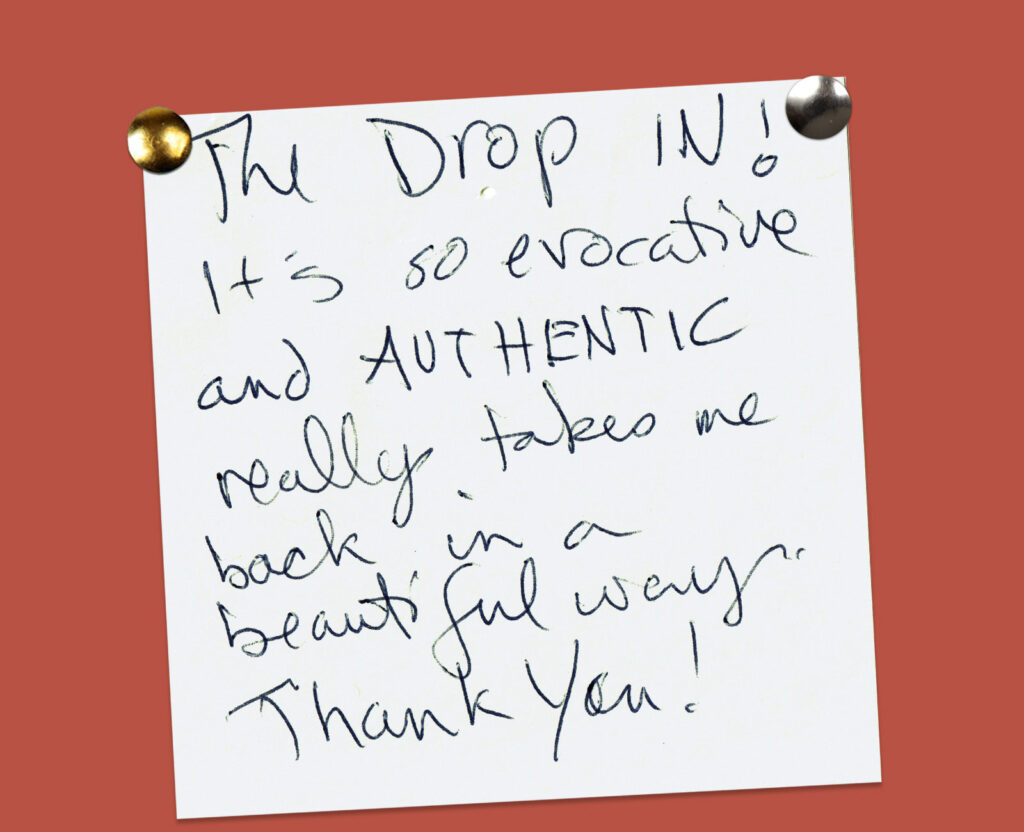 The Drop IN!
It's so evocative
and AUTHENTIC
really takes me
back in a
beautiful way..
Thank You!